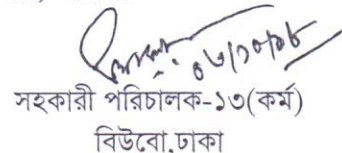 ০৮/১০/১৮
সহকারী পরিচালক-১৩(কর্ম)
বিউবো.ঢাকা